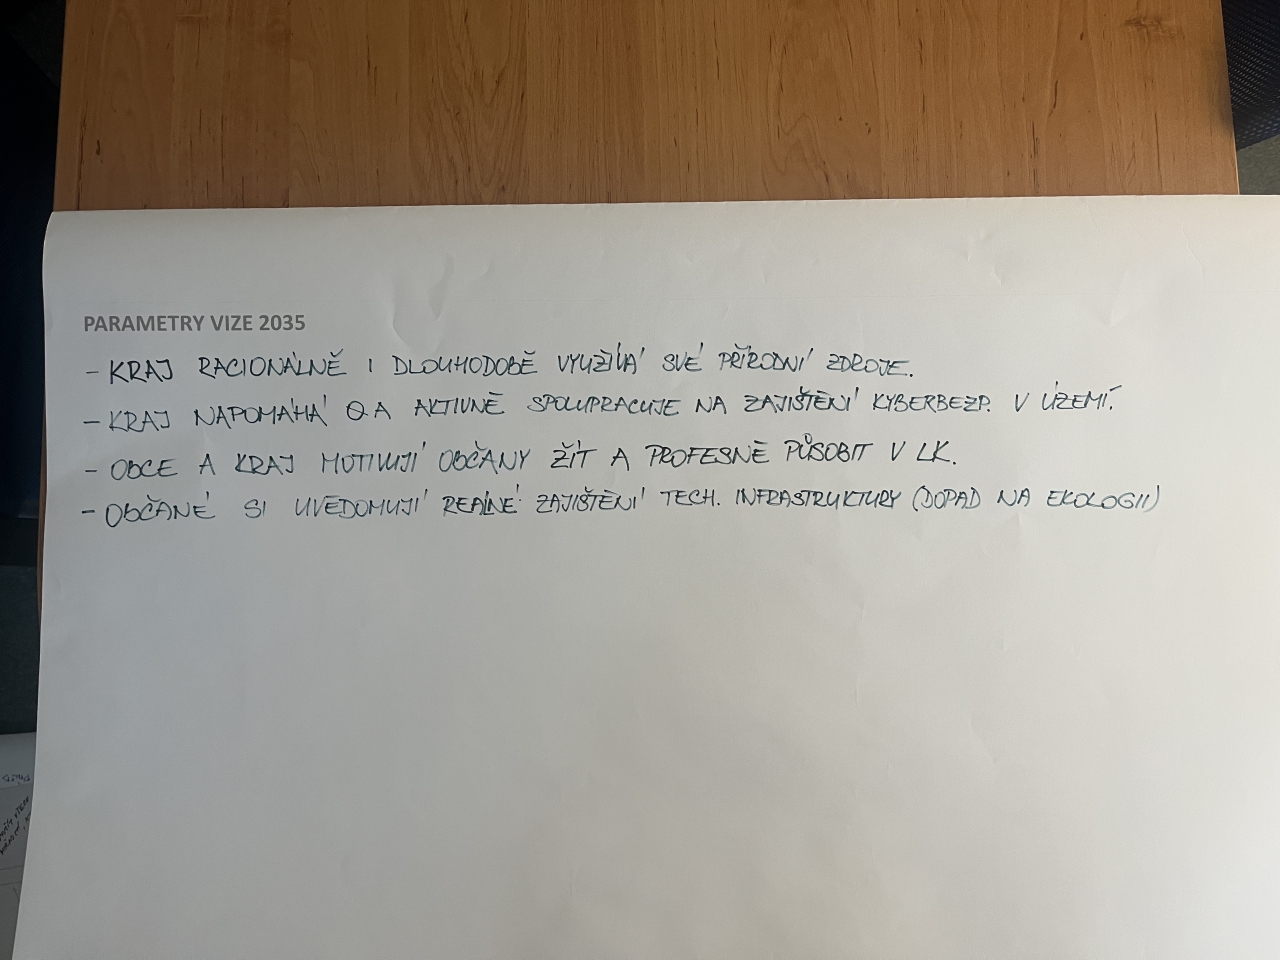 PARAMETRY VIZE 2035
- KRAJ RACIONÁLNĚ I DLOUHODOBĚ VYUŽÍVÁ SVÉ PŘÍRODNÍ ZDROJE.
- KRAJ NAPOMÁHÁ A AKTIVNĚ SPOLUPRACUJE NA ZAJIŠTĚNÍ KYBERBEZP. V ÚZEMÍ.
- OBCE A KRAJ MOTIVUJÍ OBČANY ŽÍT A PROFESNĚ PŮSOBIT V LK.
- OBČANÉ SI UVĚDOMUJÍ REÁLNÉ ZAJIŠTĚNÍ TECH. INFRASTRUKTURY (DOPAD NA EKOLOGII)